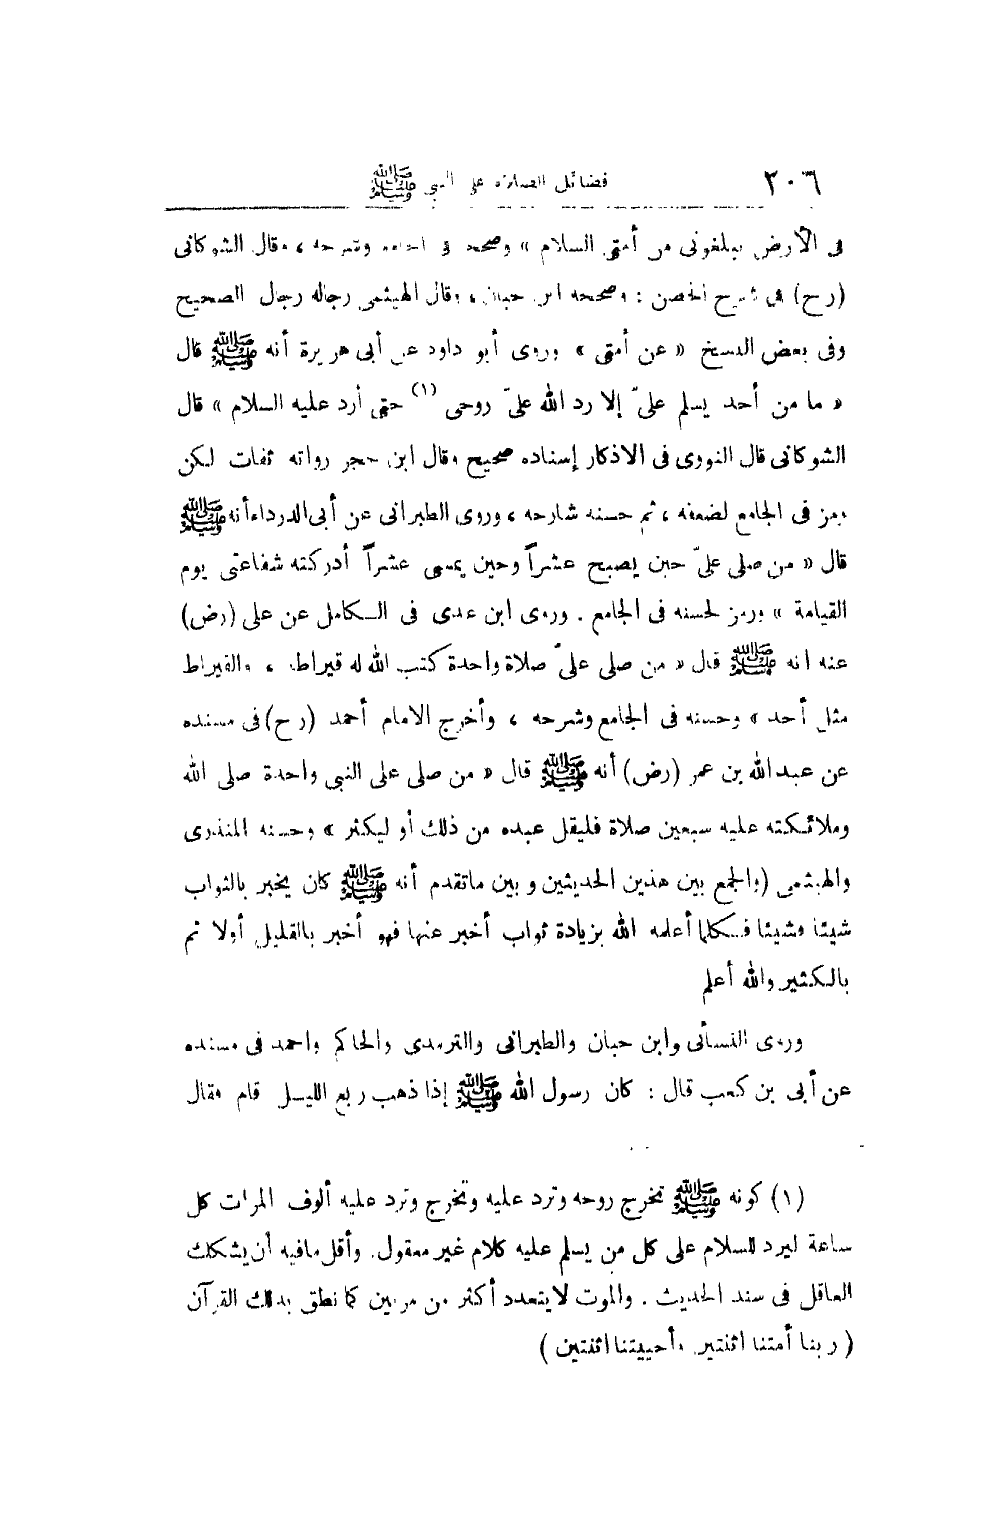 ٢٠٦ فضائل الصلاة على النبي ﷺ
فى الأرض يبلغونى من أمتى السلام » وصححه فى وشرحه ، وقال الشوكانى
( رح ) فى شرح الحصن : وصححه ابن حبان ، وقال الهيثمى رجاله رجال الصحيح
وفى بعض النسخ « عن أمتى » وروى أبو داود عن أبى هريرة أنه ﷺ قال
« ما من أحد يسلم علىّ إلا رد الله علىّ روحى (١) حتى أرد عليه السلام » قال
الشوكانى قال النووى فى الاذكار إسناده صحيح وقال ابن حجر رواته ثقات لكن
رمز فى الجامع لضعفه ، ثم حسنه شارحه ، وروى الطبرانى عن أبى الدرداء أنه ﷺ
قال « من صلى علىّ حين يصبح عشراً وحين يمسى عشراً أدركته شفاعتى يوم
القيامة » ورمز لحسنه فى الجامع . وروى ابن عدى فى الكامل عن على ( رض )
عنه انه ﷺ قال « من صلى علىّ صلاة واحدة كتب الله له قيراطا ، والقيراط
مثل أحد » وحسنه فى الجامع وشرحه ، وأخرج الامام أحمد ( رح ) فى مسنده
عن عبد الله بن عمر ( رض ) أنه ﷺ قال « من صلى على النبى واحدة صلى الله
وملائكته عليه سبعين صلاة فليقل عبده من ذلك أو ليكثر » وحسنه المنذرى
والهيثمى ( والجمع بين هذين الحديثين وبين ماتقدم أنه ﷺ كان يخبر بالثواب
شيئا فشيئا فكلما أعلمه الله بزيادة ثواب أخبر عنها فهو أخبر بالقليل أولا ثم
بالكثير والله أعلم
وروى النسائى وابن حبان والطبرانى والترمذى والحاكم واحمد فى مسنده
عن أبى بن كعب قال : كان رسول الله ﷺ إذا ذهب ربع الليل قام فقال
(١) كونه ﷺ تخرج روحه وترد عليه وتخرج وترد عليه ألوف المرات كل
ساعة ليرد السلام على كل من يسلم عليه كلام غير معقول. وأقل مافيه أن يشكك
العاقل فى سند الحديث . والموت لا يتعدد أكثر من مرتين كما نطق بذلك القرآن
( ربنا أمتنا اثنتين وأحييتنا اثنتين )